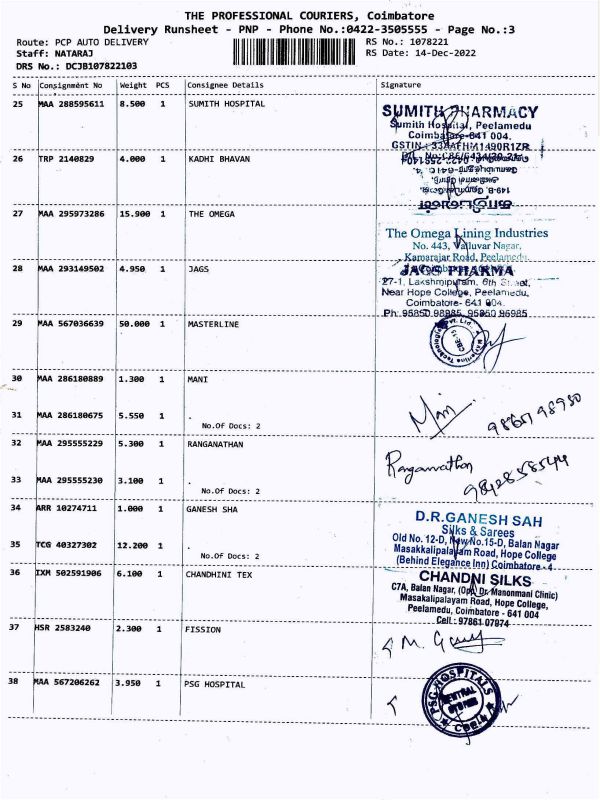 THE PROFESSIONAL COURIERS, Coimbatore
Delivery Runsheet - PNP - Phone No.:0422-3505555 - Page No.:3
Route: PCP AUTO DELIVERY RS No.: 1078221
Staff: NATARAJ RS Date: 14-Dec-2022
DRS No.: DCJB107822103
S No Consignment No Weight PCS Consignee Details Signature
25 MAA 288595611 8.500 1 SUMITH HOSPITAL
SUMITH PHARMACY
Sumith Hospital, Peelamedu
Coimbatore-641 004.
26 TRP 2140829 4.000 1 KADHI BHAVAN
27 MAA 295973286 15.900 1 THE OMEGA
The Omega Lining Industries
No. 443, Valluvar Nagar,
Kamarajar Road, Peelamedu
28 MAA 293149502 4.950 1 JAGS
JAGS PHARMA
27-1, Lakshmipuram, 6th Street,
Near Hope College, Peelamedu,
Coimbatore- 641 004.
Ph: 95850 98985, 95850 96985
29 MAA 567036639 50.000 1 MASTERLINE
30 MAA 286180889 1.300 1 MANI
Mani
31 MAA 286180675 5.550 1 .
No.Of Docs: 2
32 MAA 295555229 5.300 1 RANGANATHAN
Ranganathan
33 MAA 295555230 3.100 1 .
No.Of Docs: 2
34 ARR 10274711 1.000 1 GANESH SHA
D.R.GANESH SAH
Silks & Sarees
Old No. 12-D, New No.15-D, Balan Nagar
Masakkalipalayam Road, Hope College
(Behind Elegance Inn) Coimbatore - 4
35 TCG 40327302 12.200 1 .
No.Of Docs: 2
36 IXM 502591906 6.100 1 CHANDHINI TEX
CHANDNI SILKS
C7A, Balan Nagar, (Opp. Dr. Manonmani Clinic)
Masakalipalayam Road, Hope College,
Peelamedu, Coimbatore - 641 004
Cell : 97861 07974
37 HSR 2583240 2.300 1 FISSION
38 MAA 567206262 3.950 1 PSG HOSPITAL
PSG HOSPITALS
CENTRAL
STORES
CBE-4